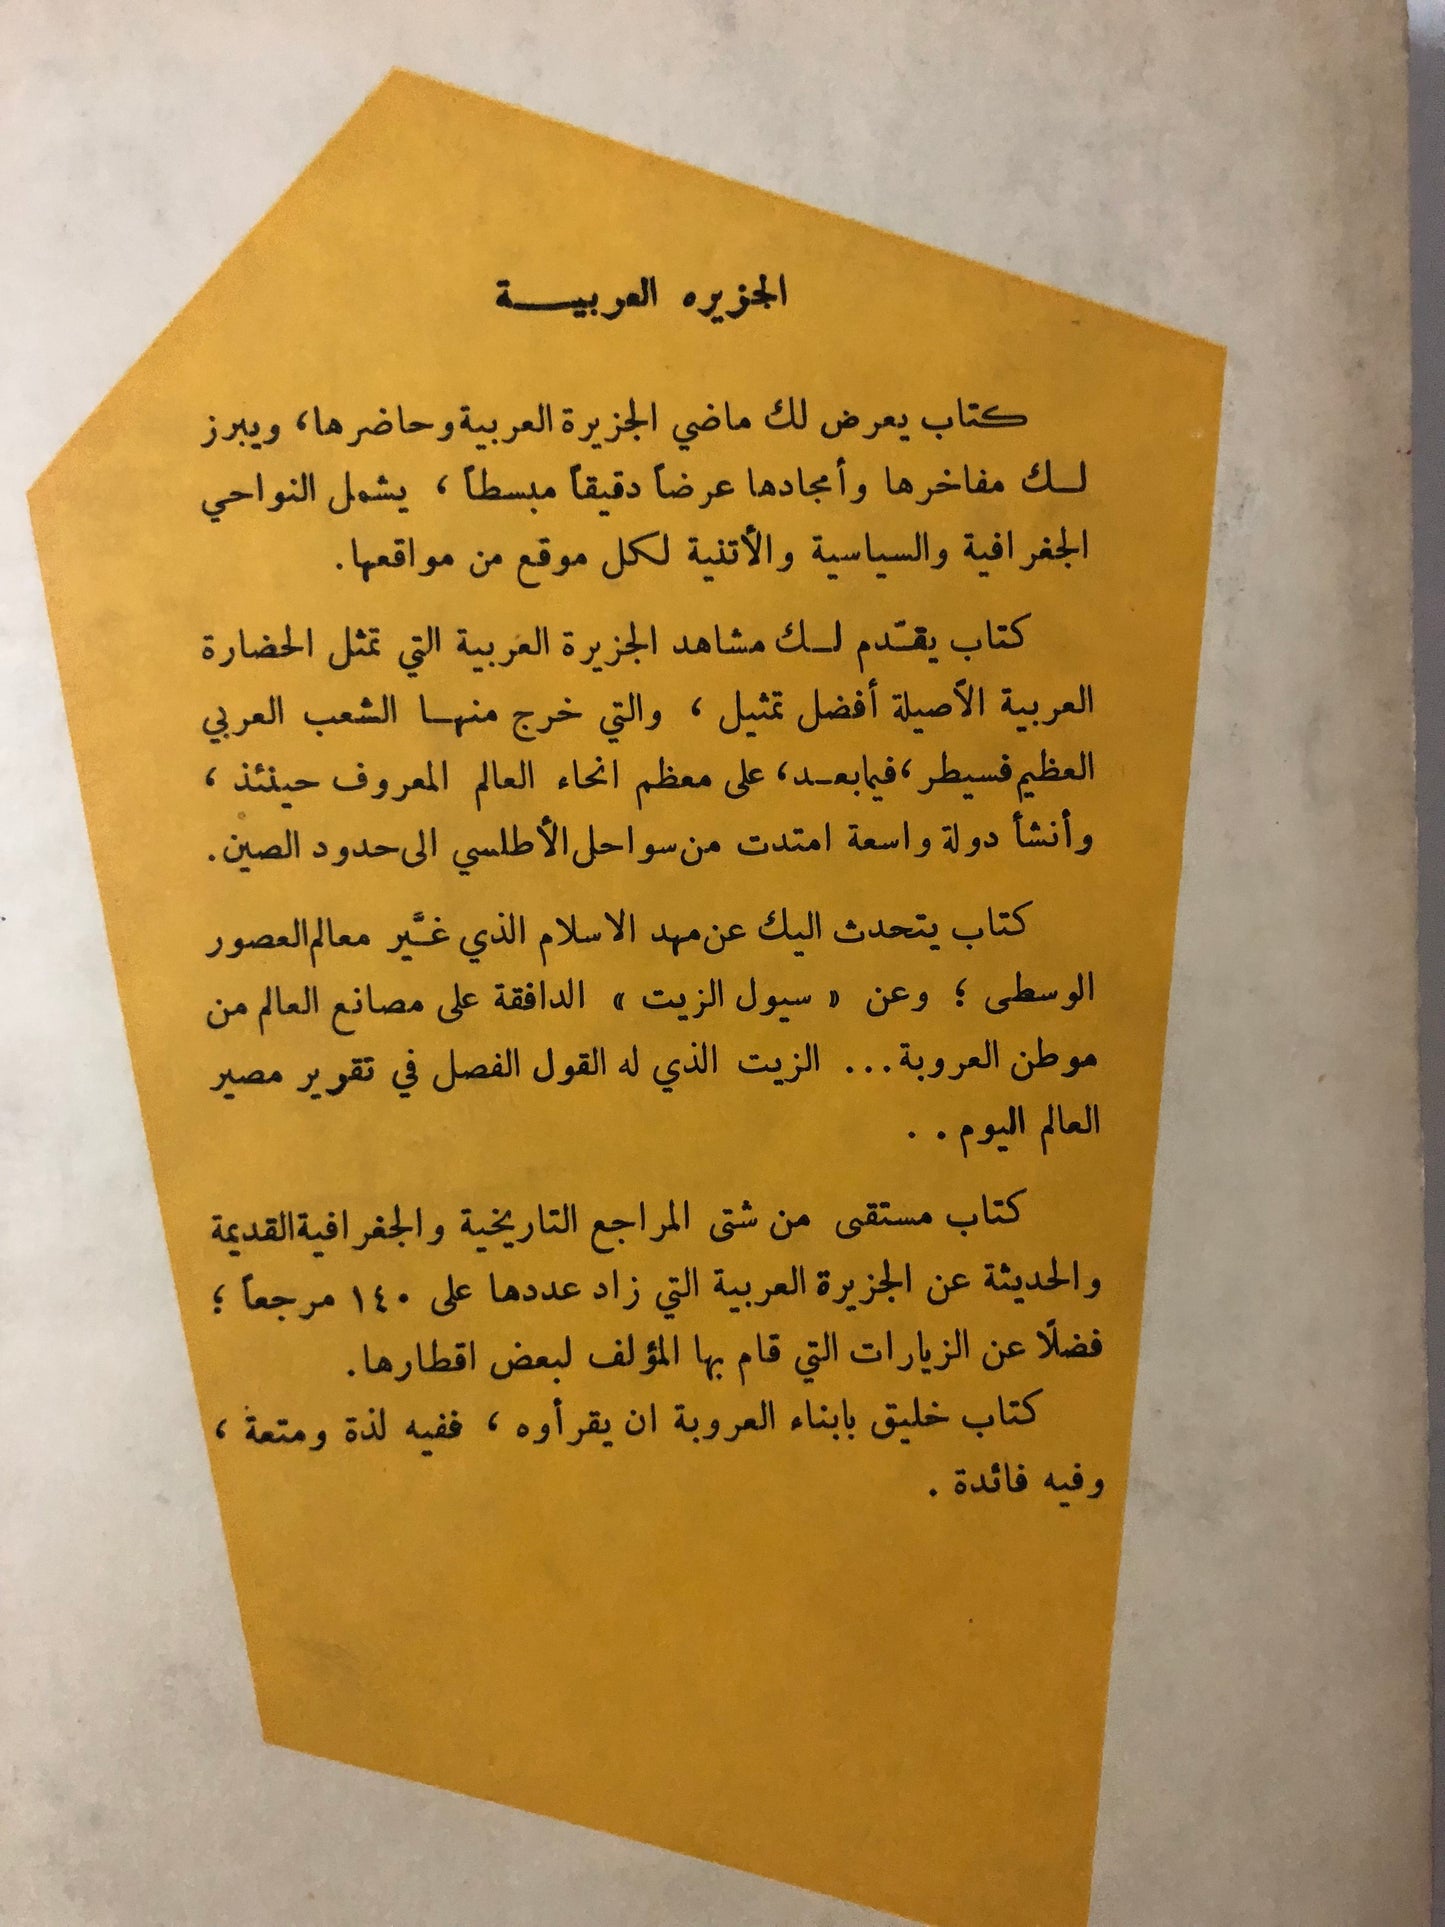 الجزيره العربيـــــة
كتاب يعرض لك ماضي الجزيرة العربية وحاضرها، ويبرز
لــك مفاخرها وأمجادها عرضاً دقيقاً مبسطاً ، يشمل النواحي
الجغرافية والسياسية والأتنية لكل موقع من مواقعها.
كتاب يقـّدم لــك مشاهد الجزيرة العربية التي تمثل الحضارة
العربية الأصيلة أفضل تمثيل ، والتي خرج منهــا الشعب العربي
العظيم فسيطر ،فيمابعــد، على معظم انحاء العالم المعروف حينئذ ،
وأنشأ دولة واسعة امتدت من سواحل الأطلسي الى حدود الصين.
كتاب يتحدث اليك عن مهد الاسلام الذي غـيَّر معالم العصور
الوسطى ؛ وعن « سيول الزيت » الدافقة على مصانع العالم من
موطن العروبة... الزيت الذي له القول الفصل في تقرير مصير
العالم اليوم . .
كتاب مستقى من شتى المراجع التاريخية والجغرافية القديمة
والحديثة عن الجزيرة العربية التي زاد عددها على ١٤٠ مرجعاً ؛
فضلًا عن الزيارات التي قام بها المؤلف لبعض اقطارها.
كتاب خليق بابناء العروبة ان يقرأوه ، ففيه لذة ومتعة ،
وفيه فائدة .